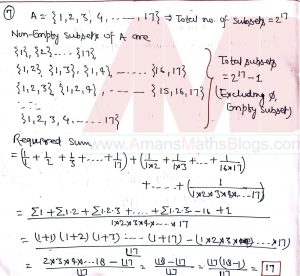 7 A = {1, 2, 3, 4, ......, 17} → Total no. of subsets = 2^17
Non-Empty subsets of A are
{1}, {2} ---- {17}
{1,2} {1,3}, {1,4} ------ {16,17}
{1,2,3} {1,2,4} ------ {15,16,17}
{1, 2, 3, 4, ----- 17}
Total subsets
= 2^17 - 1
(Excluding ∅,
Empty subset)
Required Sum
= (1/1 + 1/2 + 1/3 + ... + 1/17) + (1/1×2 + 1/1×3 + ... + 1/16×17)
+ ---- + (1/1×2×3×4×...×17)
= Σ1 + Σ1·2 + Σ1·2·3 + .... + Σ1·2·3 - 16 + 1 / 1×2×3×4×...×17
= (1+1) (1+2) (1+3) ---- (1+17) - (1×2×3×4... ×17) / 17!
= 2×3×4...18 - 17! / 17! = 18! - 17! / 17! = 17! (18-1) / 17! = 17
www.AmansMathsBlogs.com